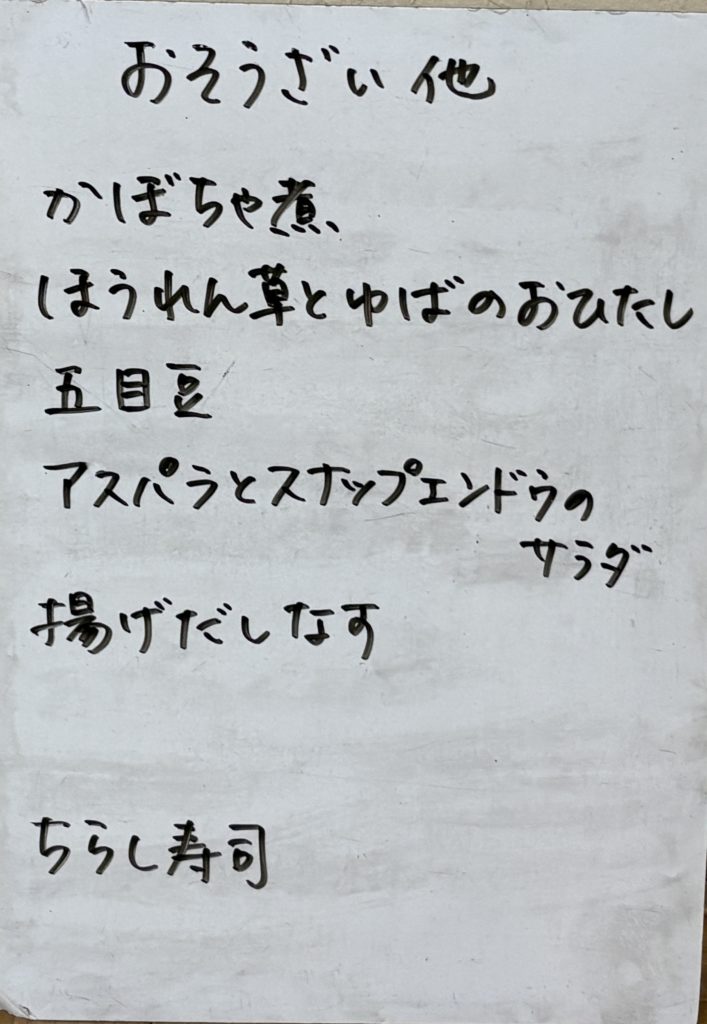 おそうざい 他
かぼちゃ煮
ほうれん草とゆばのおひたし
五目豆
アスパラとスナップエンドウの
サラダ
揚げだしなす
ちらし寿司